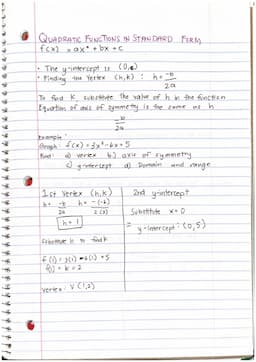 QUADRATIC FUNCTIONS IN STANDARD FORM
f(x) = ax² + bx + c
• The y-intercept is (0,c)
• Finding the Vertex (h,k) : h = -b
2a
To find k, substitute the value of h in the function
Equation of axis of symmetry is the same as h
-b
2a
Example:
Graph: f(x) = 3x² - 6x + 5
Find: a) vertex b) axis of symmetry
c) y-intercept d) Domain and range
1st Vertex (h,k)
h = -b h = -(-6)
2a 2(3)
h = 1
Substitute h to find k
f(1) = 3(1) - 6(1) + 5
f(1) = k = 2
Vertex: V(1,2)
2nd y-intercept
Substitute x=0
= y-intercept: (0,5)